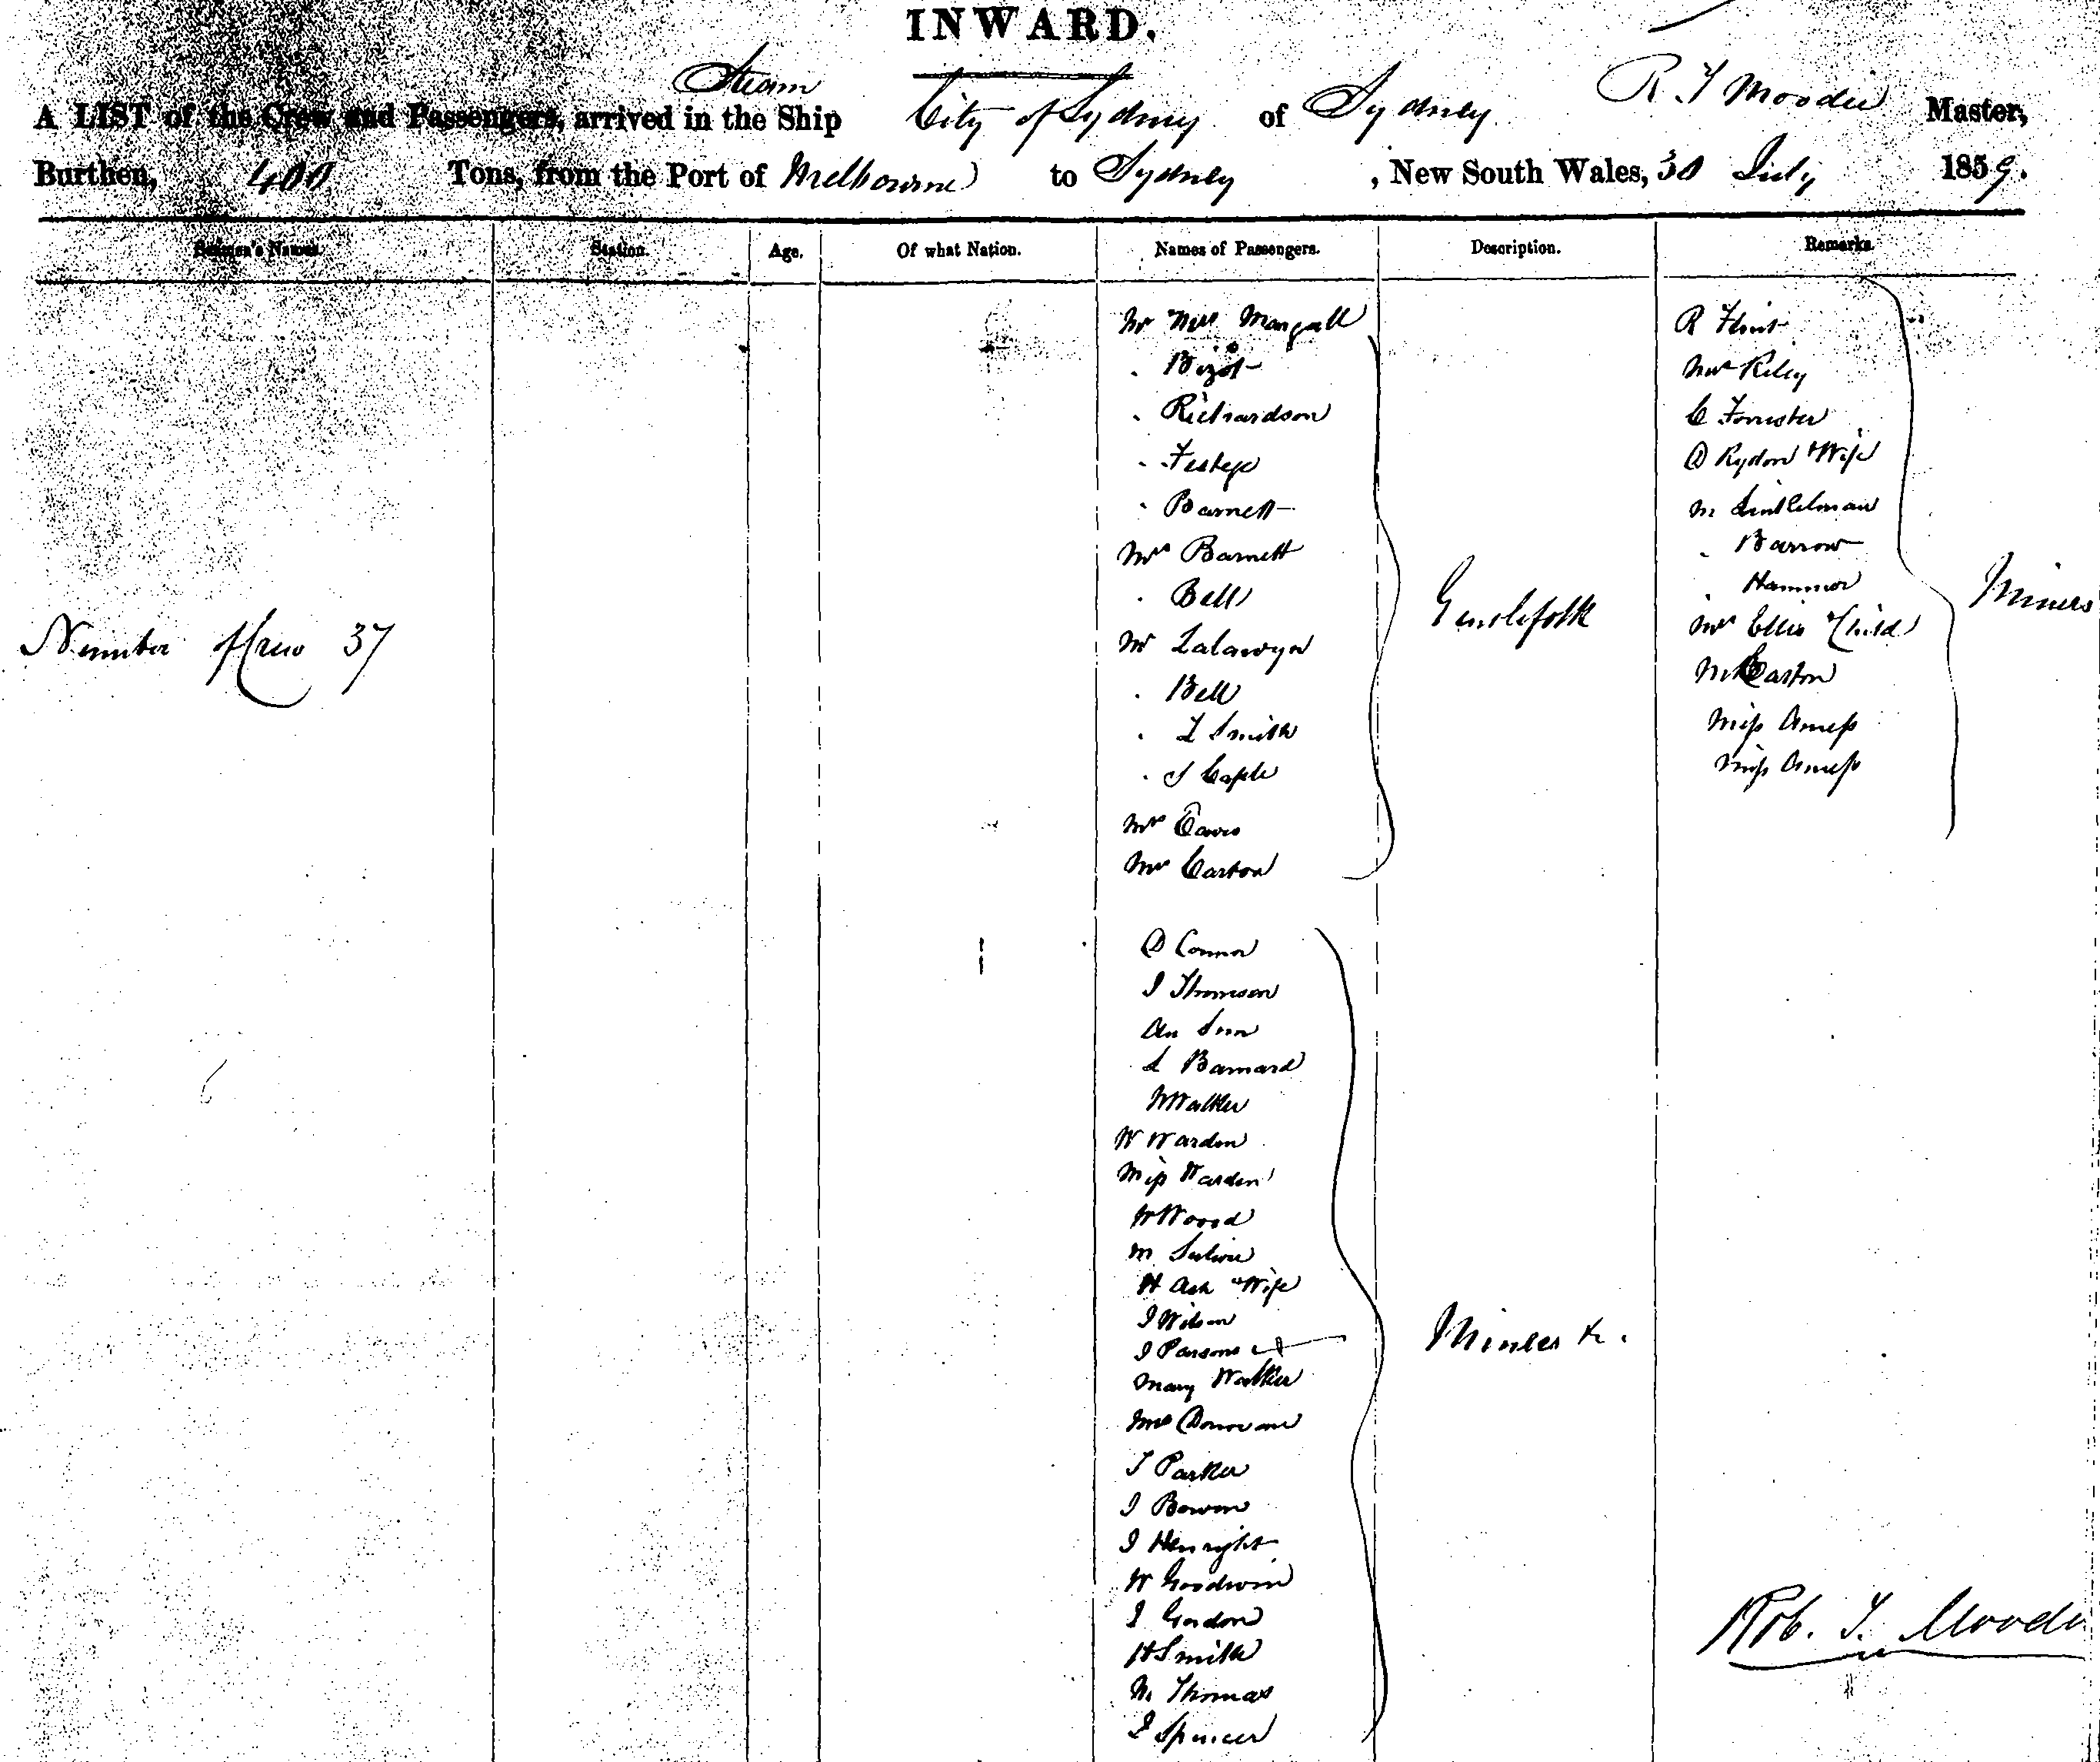 INWARD.
Steam
A LIST of the Crew and Passengers, arrived in the Ship City of Sydney of Sydney R. T Moodie Master,
Burthen, 400 Tons, from the Port of Melbourne to Sydney, New South Wales, 30 July 1859.
Seamen's Names. Station. Age. Of what Nation. Names of Passengers. Description. Remarks.
Number of Crew 37
Mr Mrs
.
. Richardson
.
. Barnett
Mrs Barnett
. Bell
Mr
. Bell
. Smith
.
Mrs
Mr
Gentlefolk
D Connor
J Thomson
Ah
L Barnard
W Walker
W Warden
Miss Warden
W Wood
M
H Ash & Wife
J Wilson
J Parsons
Mary Walker
Mrs Donovan
T Parker
J Bowen
J Henright
W Goodwin
J Gordon
H Smith
W. Thomas
J Spencer
Miners &c.
R Flint
Mrs Riley
C Forrester
D Rydon & Wife
M.
. Barrow
Hammor
Mrs Ellis & Child
Mr Easton
Miss Amess
Miss Amess
Miners
Rob. T. Moodie